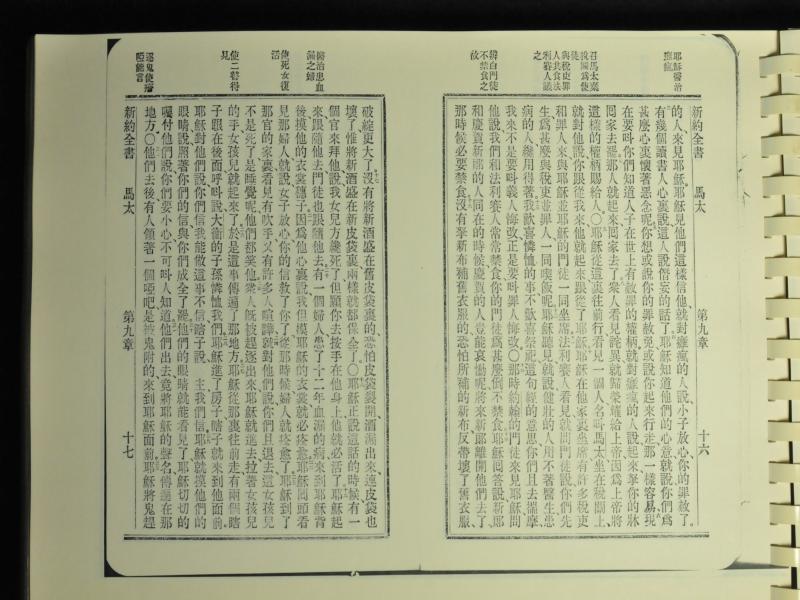 耶穌醫治
癱瘓
與稅吏罪
人飲食法
利賽人議
之
辯白門徒
不禁食之
故
新約全書 馬太 第九章 十六
的人來見耶穌耶穌見他們這樣信他就對癱瘓的人說小子放心你的罪赦了
有幾個讀書人心裏說這人說僭妄的話了耶穌知道他們的心意就說你們爲
甚麼心裏懷著惡念呢你想或說你的罪赦免或說你起來行走那一樣容易現
在要叫你們知道人子在世上有赦罪的權柄就對癱瘓的人說起來拏你的牀
囘家去罷那人就起來囘家去了衆人看見詫異就歸榮耀給上帝因爲上帝將
這樣的權柄賜給人○耶穌從這裏往前行看見一個人名叫馬太坐在稅關上
就對他說你跟從我來他就起來跟從了耶穌耶穌在他家裏坐席有許多稅吏
和罪人來與耶穌並耶穌的門徒一同坐席法利賽人看見就問門徒說你們先
生爲甚麼與稅吏並罪人一同喫飯呢耶穌聽見就說健壯的人用不著醫生患
病的人纔用得著我歡喜憐恤的事不歡喜祭祀這句經的意思你們且去揣摩
我來不是要叫義人悔改正是要叫罪人悔改○那時約翰的門徒來見耶穌問
他說我們和法利賽人常常禁食你的門徒爲甚麼倒不禁食耶穌囘答說新郎
和慶賀新郎的人同在的時候慶賀的人豈能哀慟呢將來新郎離開他們去了
那時候必要禁食沒有拏新布補舊衣服的恐怕所補的新布反帶壞了舊衣服
醫治患血
漏之婦
使死女復
活
使二瞽得
見
逐鬼使瘖
啞能言
破綻更大了沒有將新酒盛在舊皮袋裏的恐怕皮袋裂開酒漏出來連皮袋也
壞了惟將新酒盛在新皮袋裏兩樣就都保全了○耶穌正說這話的時候有一
個官來拜他說我女兒方纔死了但願你去按手在他身上他就必活了耶穌起
來跟隨他去門徒也跟隨他去有一個婦人患了十二年血漏的病來到耶穌背
後摸他的衣裳䍁子因爲他心裏說我但摸耶穌的衣裳就必痊愈耶穌囘頭看
見那婦人就說女子放心你的信救了你了從那時候婦人就痊愈了耶穌到了
那官的家裏看見有吹手又有許多人喧譁就對他們說你們且退去這女孩兒
不是死了是睡覺呢他們都笑他衆人既被趕逐出來耶穌就進去拉著女孩兒
的手女孩兒就起來了於是這事傳遍了那地方耶穌從那裏往前走有兩個瞎
子跟在後面呼叫說大衞的子孫憐恤我們耶穌進了房子瞎子就來到他面前
耶穌對他們說你們信我能做這事不信瞎子說主我們信耶穌就摸他們的
眼睛說照著你們的信與你們成全了罷他們的眼睛就能看見了耶穌切切的
囑付他們說你們要小心不可叫人知道他們出去竟將耶穌的聲名傳遍在那
地方○他們去後有人領著一個啞吧是被鬼附的來到耶穌面前耶穌將鬼趕
新約全書 馬太 第九章 十七